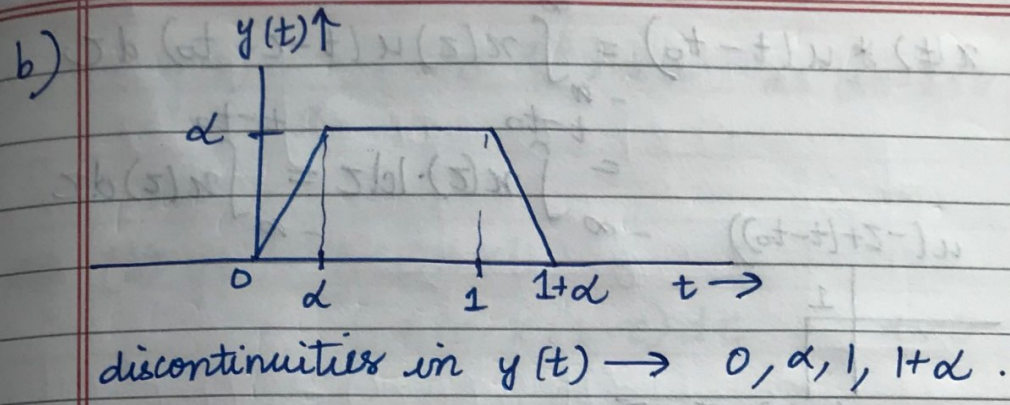 b) y(t)↑
α
0 α 1 1+α t →
discontinuities in y(t) → 0, α, 1, 1+α.